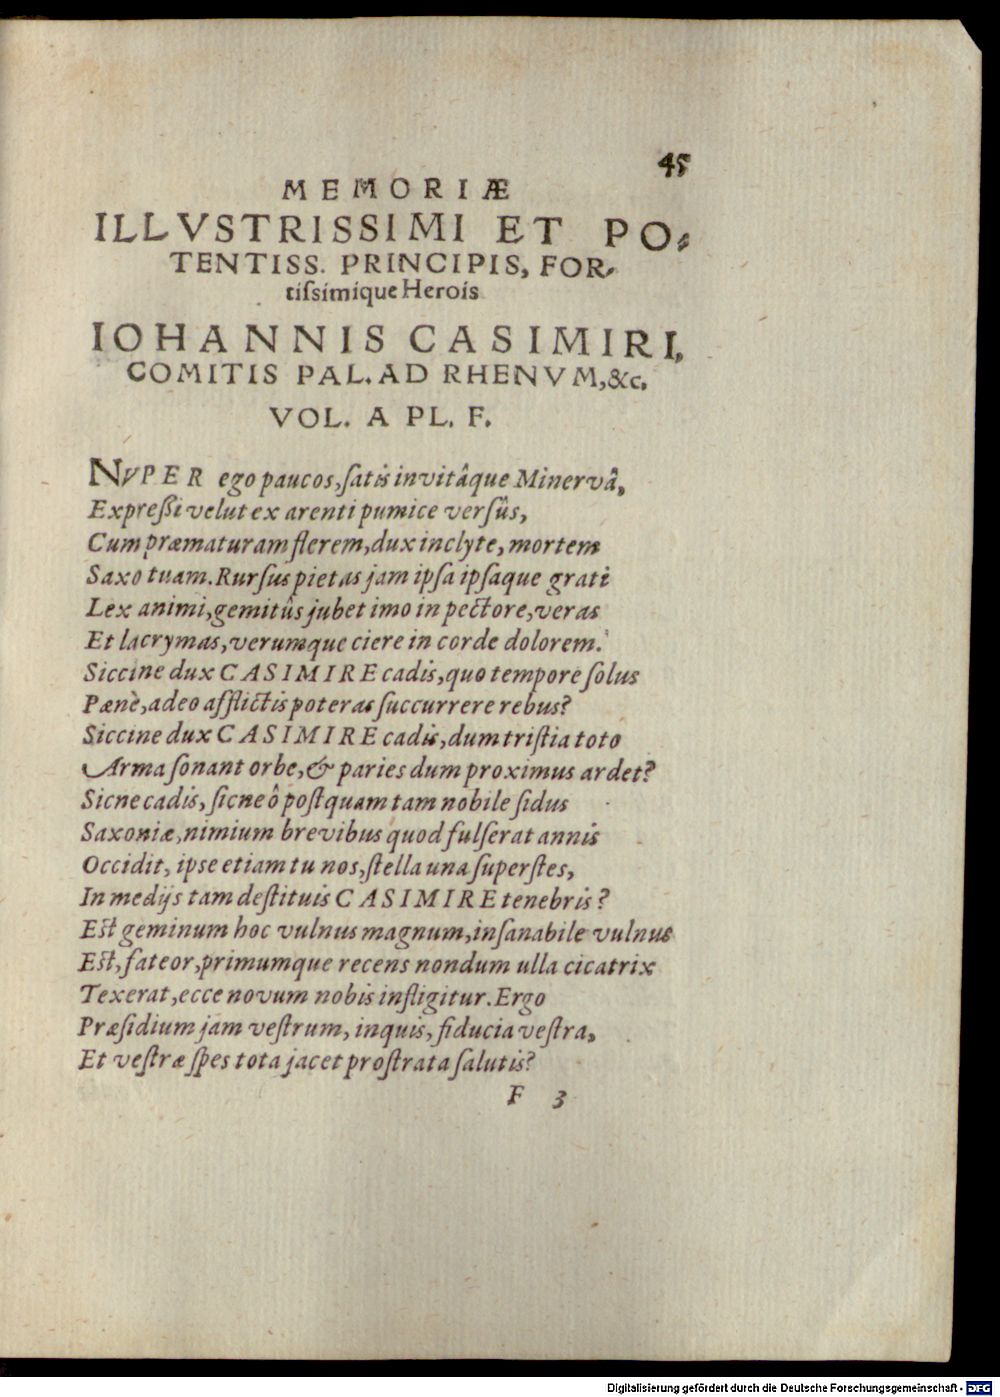 45
MEMORIÆ
ILLVSTRISSIMI ET PO-
TENTISS. PRINCIPIS, FOR-
tiſsimique Herois
IOHANNIS CASIMIRI,
COMITIS PAL. AD RHENVM, &c.
VOL. A PL. F.
NVPER ego paucos, ſatis invitâque Minervâ,
Expreſſi velut ex arenti pumice verſûs,
Cum præmaturam flerem, dux inclyte, mortem
Saxo tuam. Rurſus pietas jam ipſa ipſaque grati
Lex animi, gemitûs jubet imo in pectore, veras
Et lacrymas, verumque ciere in corde dolorem.
Siccine dux CASIMIRE cadis, quo tempore ſolus
Pænè, adeo afflictis poteras ſuccurrere rebus?
Siccine dux CASIMIRE cadis, dum triſtia toto
Arma ſonant orbe, & paries dum proximus ardet?
Sicne cadis, ſicne ô poſtquam tam nobile ſidus
Saxoniæ, nimium brevibus quod fulſerat annis
Occidit, ipse etiam tu nos, ſtella una ſuperſtes,
In medijs tam deſtituis CASIMIRE tenebris?
Eſt geminum hoc vulnus magnum, inſanabile vulnus
Eſt, fateor, primumque recens nondum ulla cicatrix
Texerat, ecce novum nobis infligitur. Ergo
Præſidium jam veſtrum, inquis, fiducia veſtra,
Et veſtræ ſpes tota jacet proſtrata ſalutis?
F 3
Digitalisierung gefördert durch die Deutsche Forschungsgemeinschaft - DFG